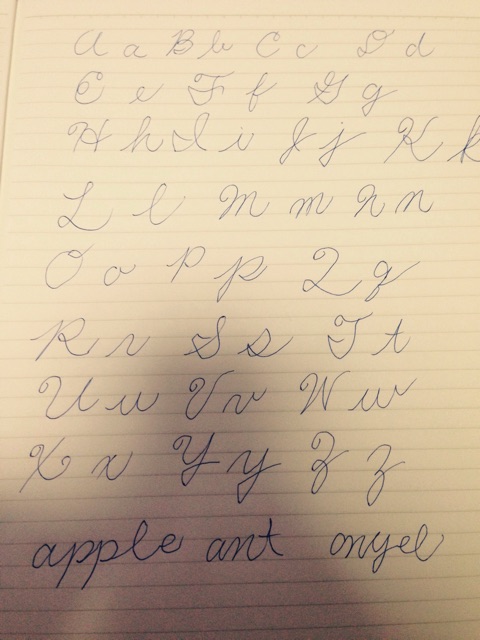 A a B b C c D d
E e F f G g
H h I i J j K k
L l M m N n
O o P p Q q
R r S s T t
U u V v W w
X x Y y Z z
apple ant